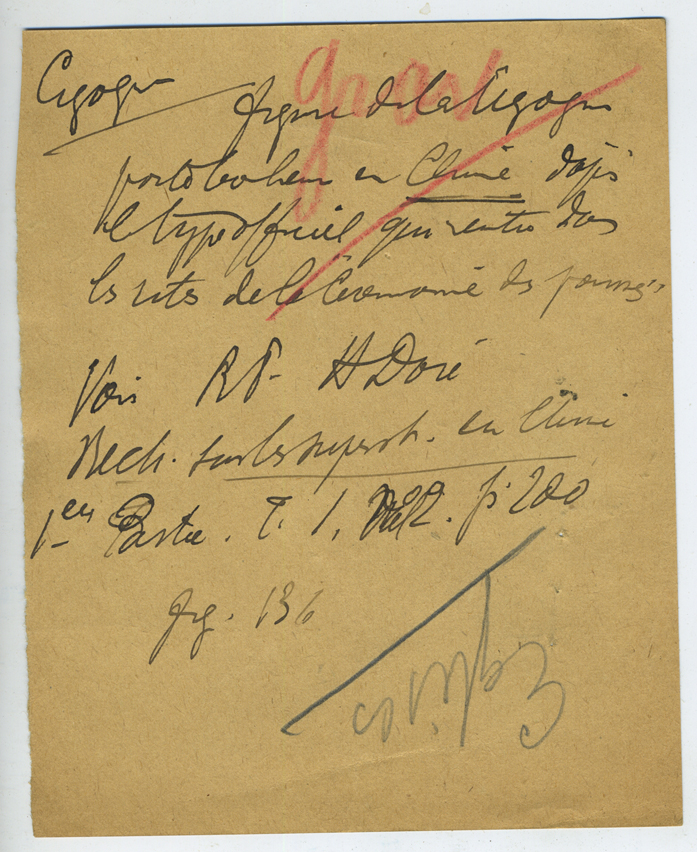 Cigogne
figure de la Cigogne
porte bonheur en Chine
le type officiel qui rentre dans
les rites de la Cérémonie des
Voir R.P. H Doré
Rech. sur les superst. en Chine
1ère Partie. T. 1. p. 200
fig. 136